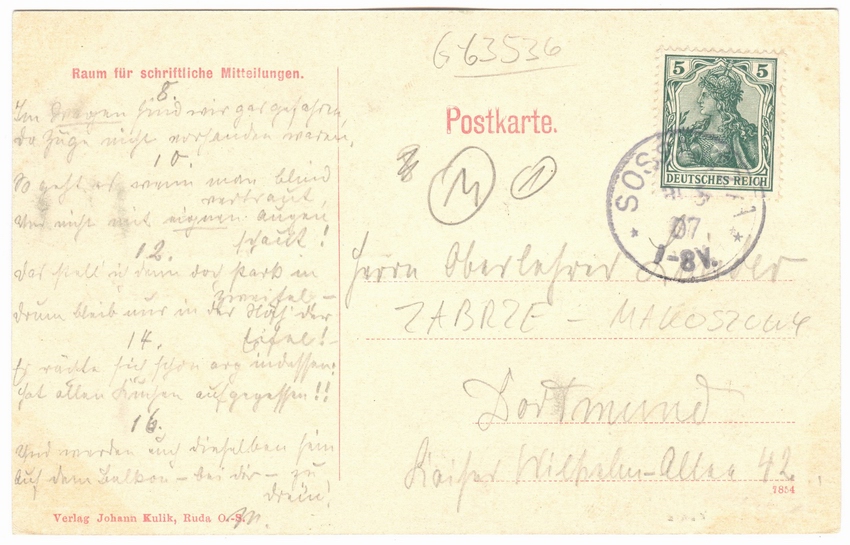 G-63536
Raum für schriftliche Mitteilungen.
Postkarte.
5 5
DEUTSCHES REICH
SOS
07.
7-8V.
M 1
8.
Im sind wir gar gefahren,
da Züge nicht vorhanden waren,
10.
So geht es wenn man blind
vertraut,
Und nicht mit eignen Augen
schaut!
12.
Das stell ich denn doch stark in
Zweifel-
drum bleib nur in der Näh' der
Eifel!-
14.
Es rächte sich schon arg indessen:
hat allen Kuchen aufgegessen!!
16.
Und werden auch dieselben sein
Auf dem Balkon - bei der - zu
drein!
Herrn Oberlehrer
ZABRZE - MAKOSZOWY
Dortmund
Kaiser Wilhelm-Allee 42.
7854
Verlag Johann Kulik, Ruda O.-S.